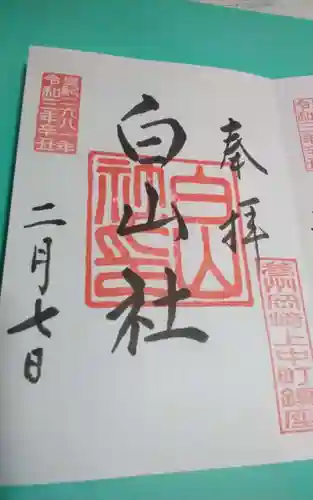 奉拝
白山社
二月七日
白山
社印
皇紀二六八一年
令和三年辛丑
州岡崎上中町鎮座